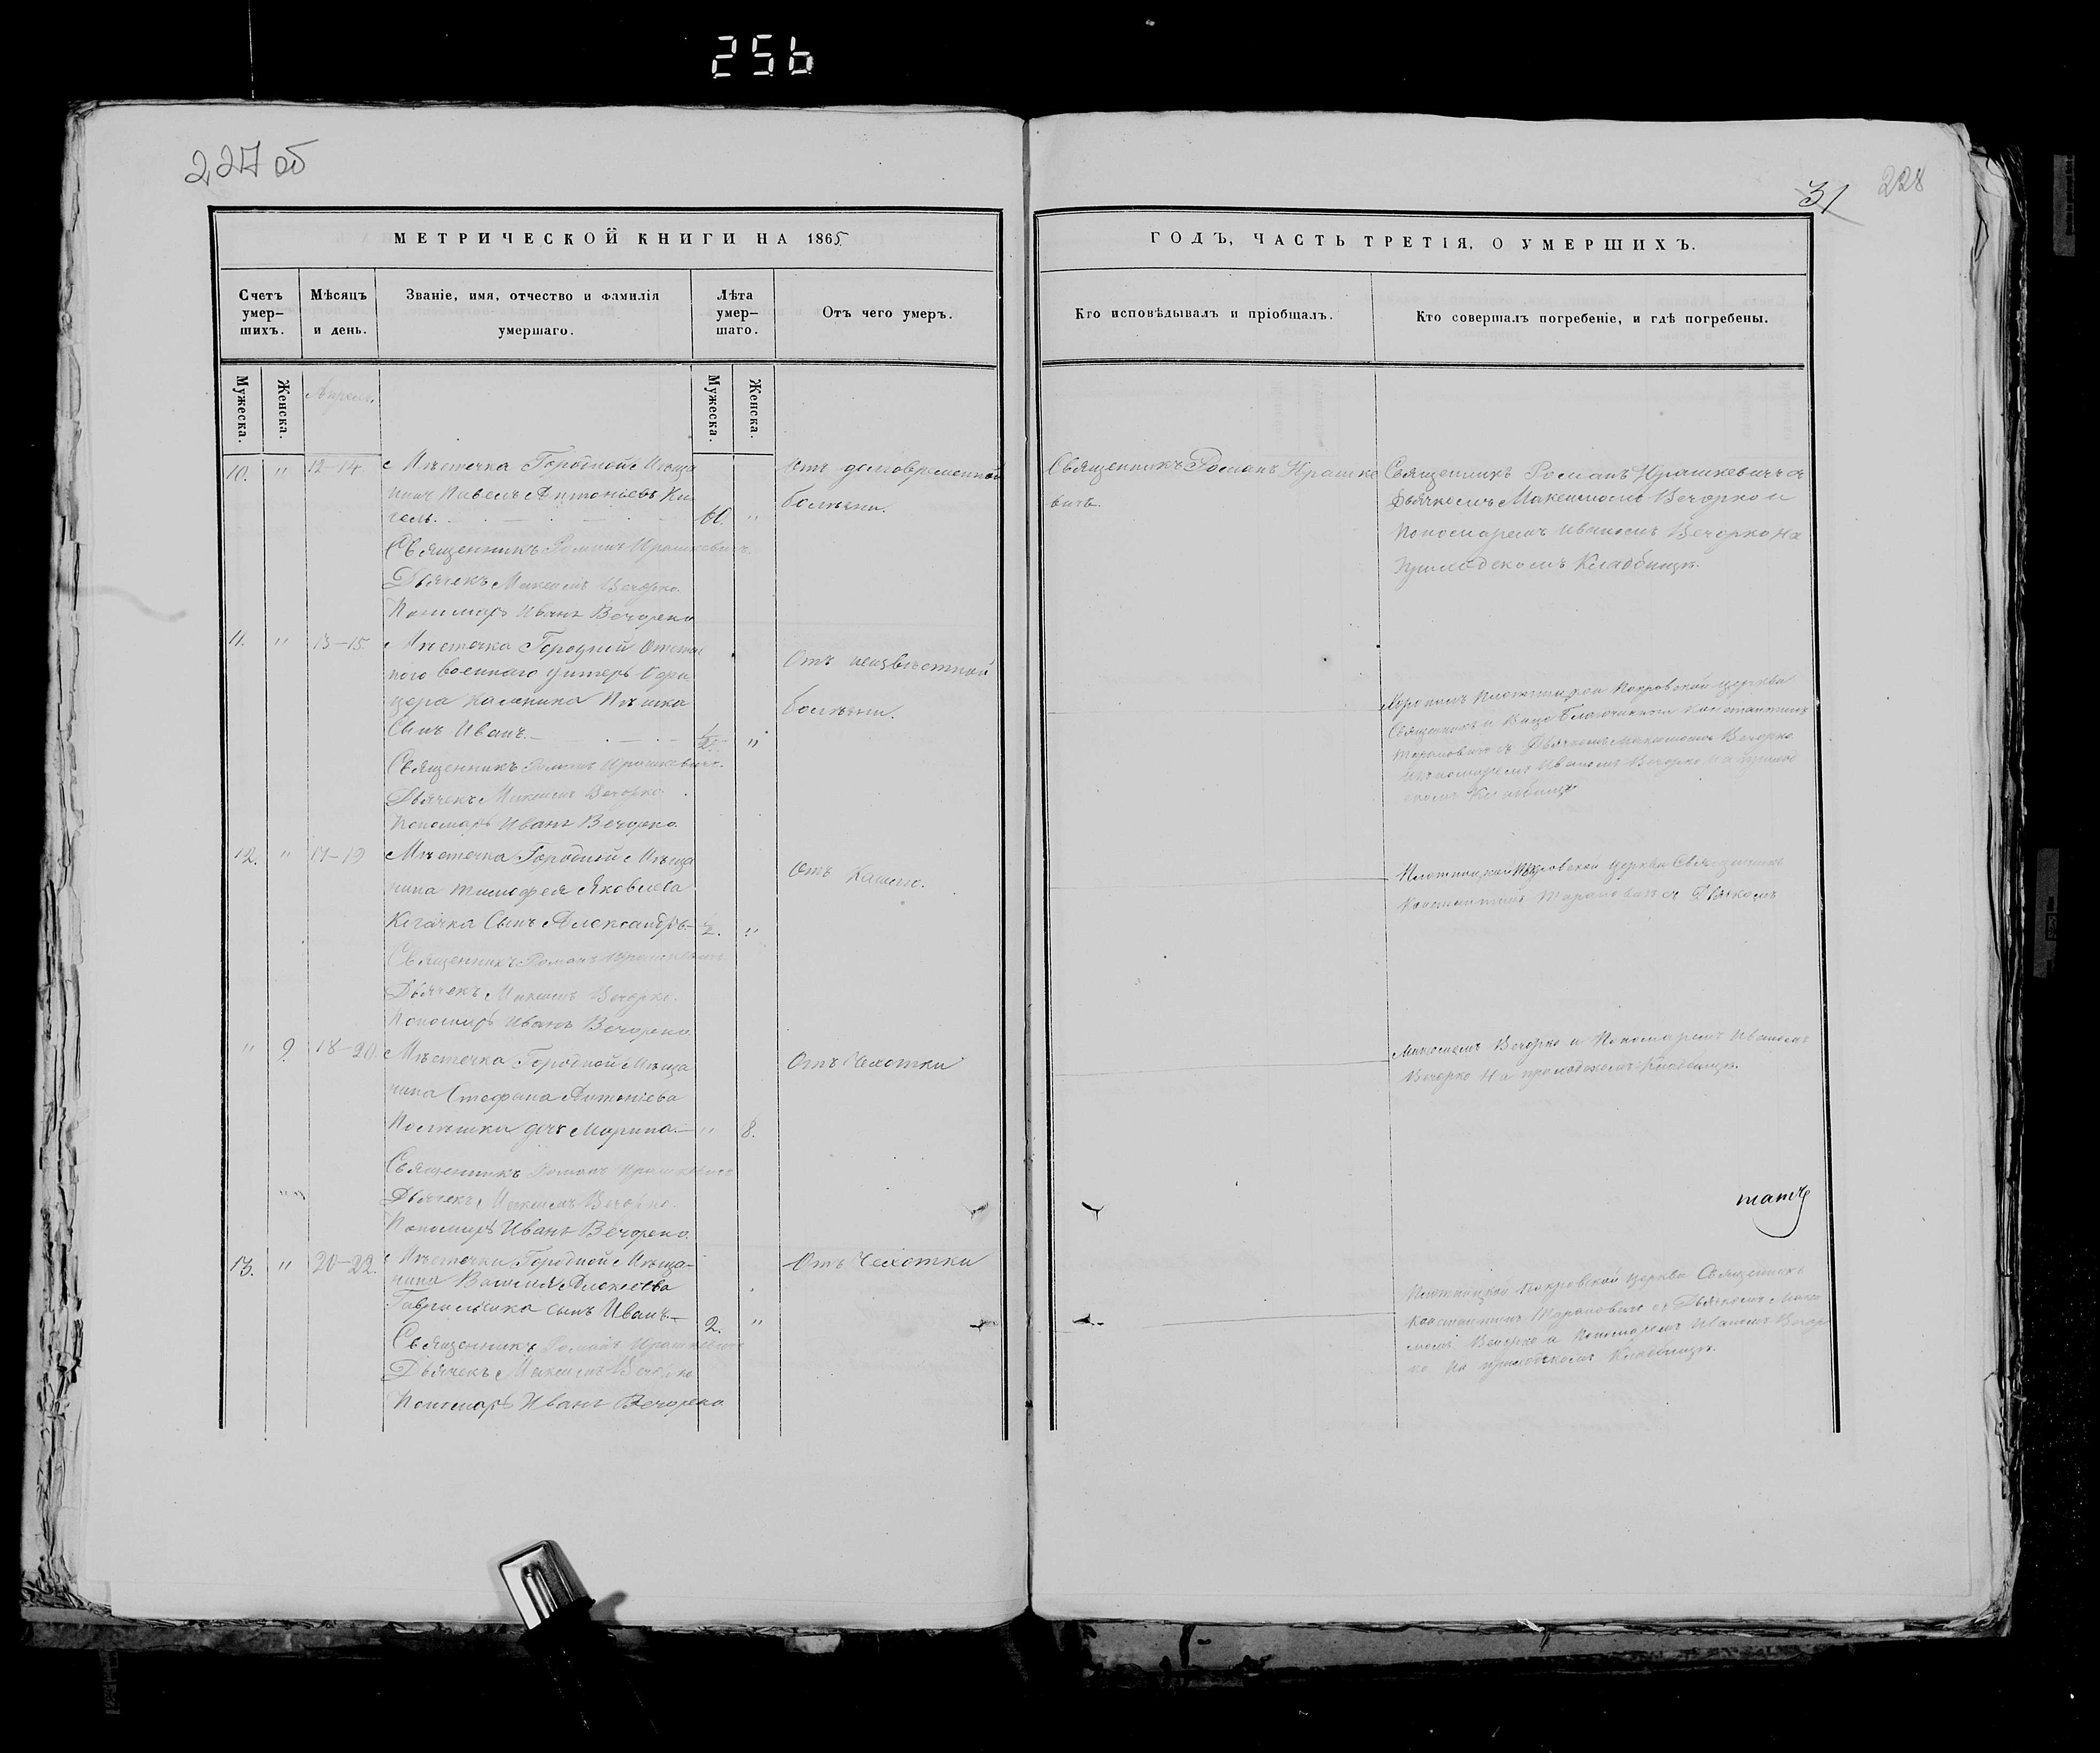 256
227 об
31
228
МЕТРИЧЕСКОЙ КНИГИ НА 1865
ГОДЪ, ЧАСТЬ ТРЕТІЯ, О УМЕРШИХЪ.
Счетъ умер-
шихъ.
Мѣсяцъ
и день.
Званіе, имя, отчество и фамилія
умершаго.
Лѣта
умер-
шаго.
Отъ чего умеръ.
Кто исповѣдывалъ и пріобщалъ.
Кто совершалъ погребеніе, и гдѣ погребены.
Мужеска.
Женска.
Апрель.
Мужеска.
Женска.
10. " 12-14. Мѣстечка Городной Мѣща
нинъ Павелъ Антоніевъ Ки
сель. "
Отъ долговременной
болѣзни.
Священникъ Романъ Ирашке
вичъ.
Священникъ Романъ Ирашкевичъ съ
Дьячкомъ Максимомъ Вечорко и
Пономаремъ Иваномъ Вечорко на
Приходскомъ Кладбищѣ.
Священникъ Романъ Ирашкевичъ.
Дьячекъ Максимъ Вечорко.
Пономарь Иванъ Вечорко
11. " 13-15. Мѣстечка Городной Отстав
ного военнаго унтеръ Офи
цера
Сынъ Иванъ. 1/2. "
Отъ неизвѣстной
болѣзни.
Покровской церкви
Священникъ и Вице Благочинный Константинъ
Тарановичъ съ Дьячкомъ Максимомъ Вечорко
и Пономаремъ Иваномъ Вечорко на приход
скомъ Кладбищѣ
Священникъ Романъ Ирашкевичъ.
Дьячекъ Максимъ Вечорко.
Пономарь Иванъ Вечорко.
12. " 17-19 Мѣстечка Городной Мѣща
нина Тимофея Яковлева
Сынъ Александръ 1/2. "
Отъ Кашлю.
Покровской церкви Священникъ
Константинъ Тарановичъ съ Дьячкомъ
Священникъ Романъ Ирашкевичъ
Дьячекъ Максимъ Вечорко.
Пономарь Иванъ Вечорко
" 9. 18-20. Мѣстечка Городной Мѣща
нина Стефана Антоніева
дочь Марина. " 8.
Отъ Чехотки
Максимомъ Вечорко и Пономаремъ Иваномъ
Вечорко На приходскомъ Кладбищѣ.
Священникъ Романъ Ирашкевичъ
Дьячекъ Максимъ Вечорко.
Пономарь Иванъ Вечорко
13. " 20-22. Мѣстечка Городной Мѣща-
нина Василія Алексѣева
сынъ Иванъ. 2. "
Отъ Чехотки
Покровской церкви Священникъ
Константинъ Тарановичъ съ Дьячкомъ Макси
момъ Вечорко и Пономаремъ Иваномъ Вечор
ко на приходскомъ Кладбищѣ.
Священникъ Романъ Ирашкевичъ
Дьячекъ Максимъ Вечорко
Пономарь Иванъ Вечорко